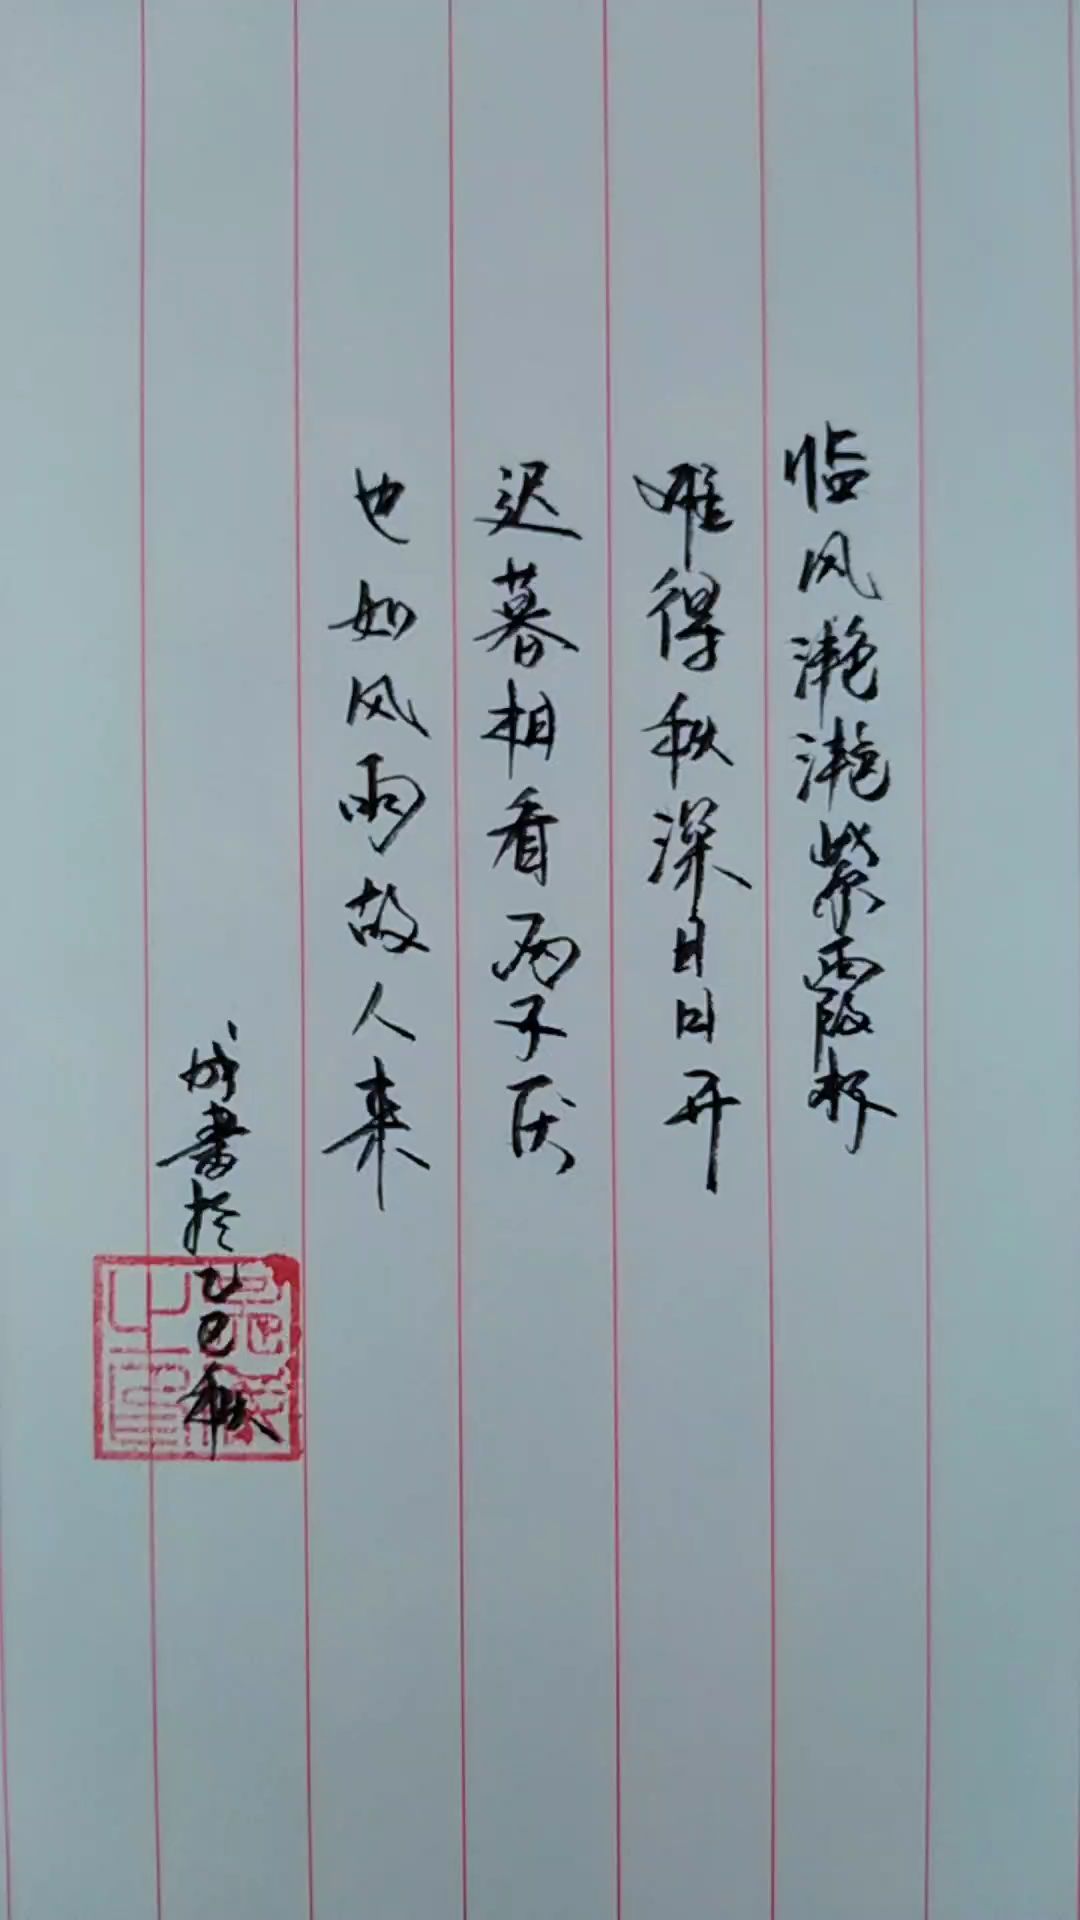 临风滟滟紫霞杯
难得秋深日日开
迟暮相看两不厌
也如风雨故人来
成书於乙巳秋